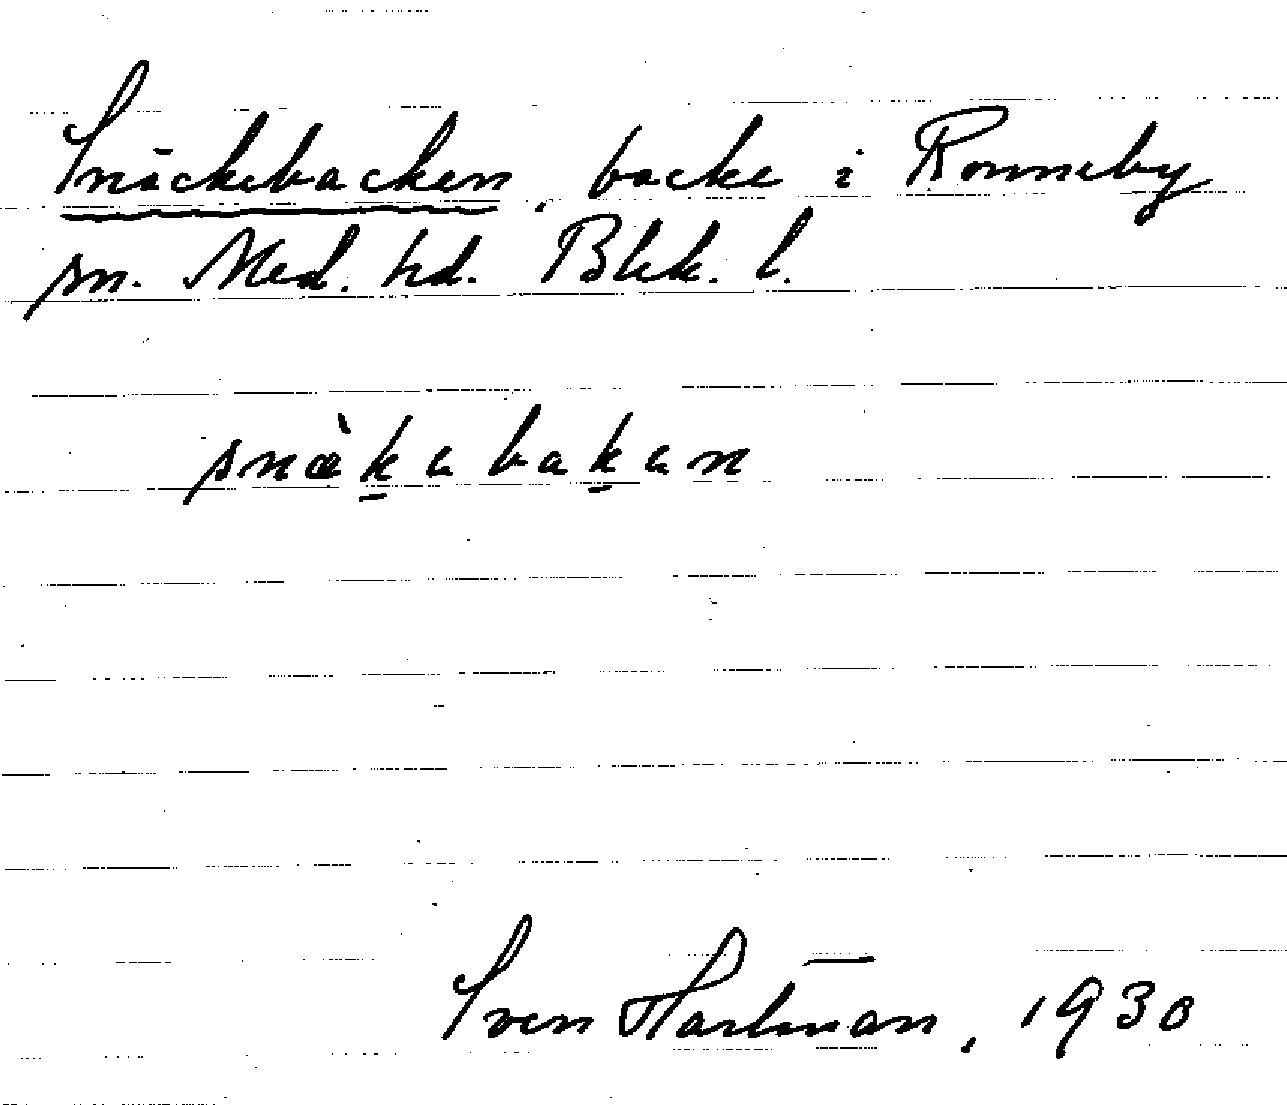 Snäckebacken, backe i Ronneby
sn. Med. hd. Blek. l.
snæ̀kabakan
Sven Hartman, 1930